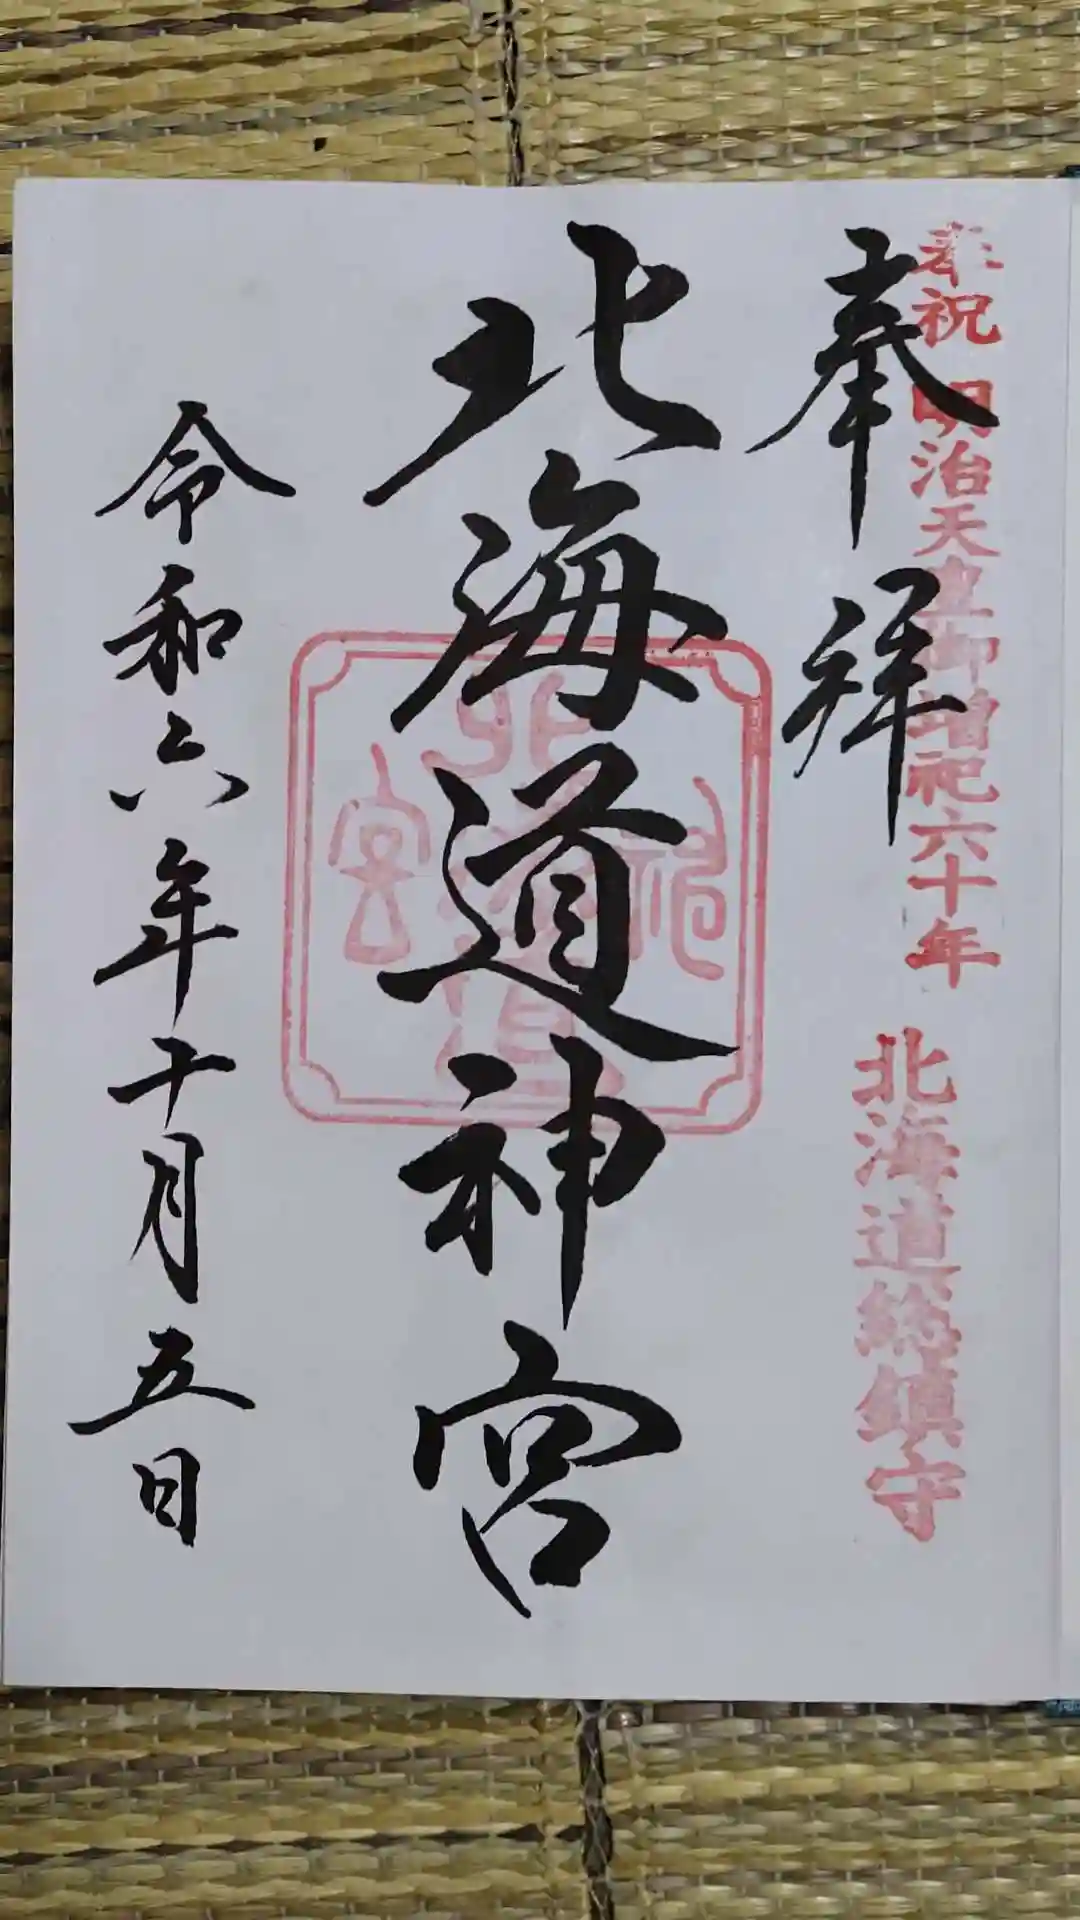 奉祝 明治天皇御増祀六十年
北海道総鎮守
奉拝
北海道神宮
令和六年十月五日
北海道神宮